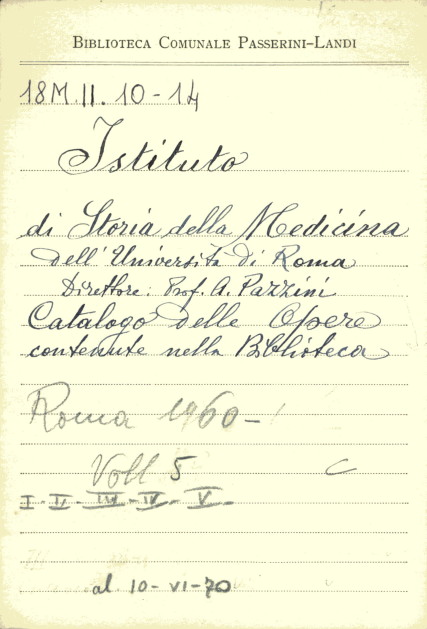 BIBLIOTECA COMUNALE PASSERINI-LANDI
18M.II. 10-14
Istituto
di Storia della Medicina
dell'Università di Roma
Direttore: Prof. A. Pazzini
Catalogo delle Opere
contenute nella Biblioteca
Roma 1960-
Voll 5 C
I - II - III - IV - V -
al 10-VI-70